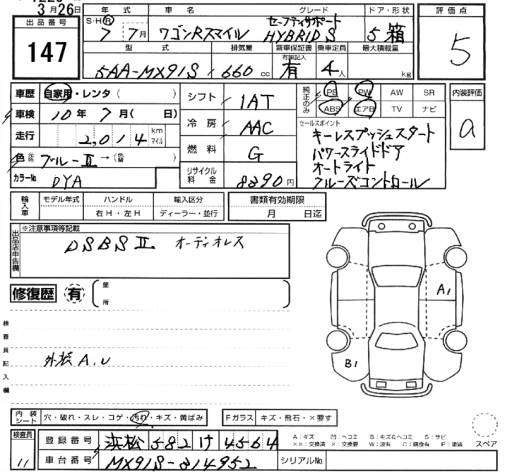 3月26日
出品番号
147
年式
S・H・R
7年7月
車名
ワゴンRスマイル
グレード
セーフティサポート
HYBRID S
ドア・形状
5 箱
評価点
5
型式
5AA-MX91S
排気量
660 cc
新車保証書
有 限記入
有
乗車定員
4人
最大積載量
kg
車歴
自家用・レンタ( )
車検
10年7月(日)
走行
2,014 km マイル
色
ブルーⅡ→(替色)
カラーNo
DYA
シフト
1AT
冷房
AAC
燃料
G
リサイクル料金
8290円
純正のみ
PS PW AW SR
ABS エアB TV ナビ
セールスポイント
キーレスプッシュスタート
パワースライドドア
オートライト
クルーズコントロール
内装評価
a
輸入車
モデル年式
ハンドル
右H・左H
輸入区分
ディーラー・並行
書類有効期限
月 日迄
出品店申告欄
※注意事項等記載
DSBSⅡ オーディオレス
修復歴
有
箇所
検査員記入欄
外板A,U
A1
B1
内装シート
穴・破れ・スレ・コゲ・汚れ・キズ・黄ばみ
Fガラス
キズ・飛石・×要す
検査員
11
登録番号
浜松 582 け 4564
車台番号
MX91S-314952
シリアルNo
A:キズ U:ヘコミ B:キズ&ヘコミ S:サビ
××:交換済 ×:要交換 W:波有 C:腐食有 P:塗装
スペア